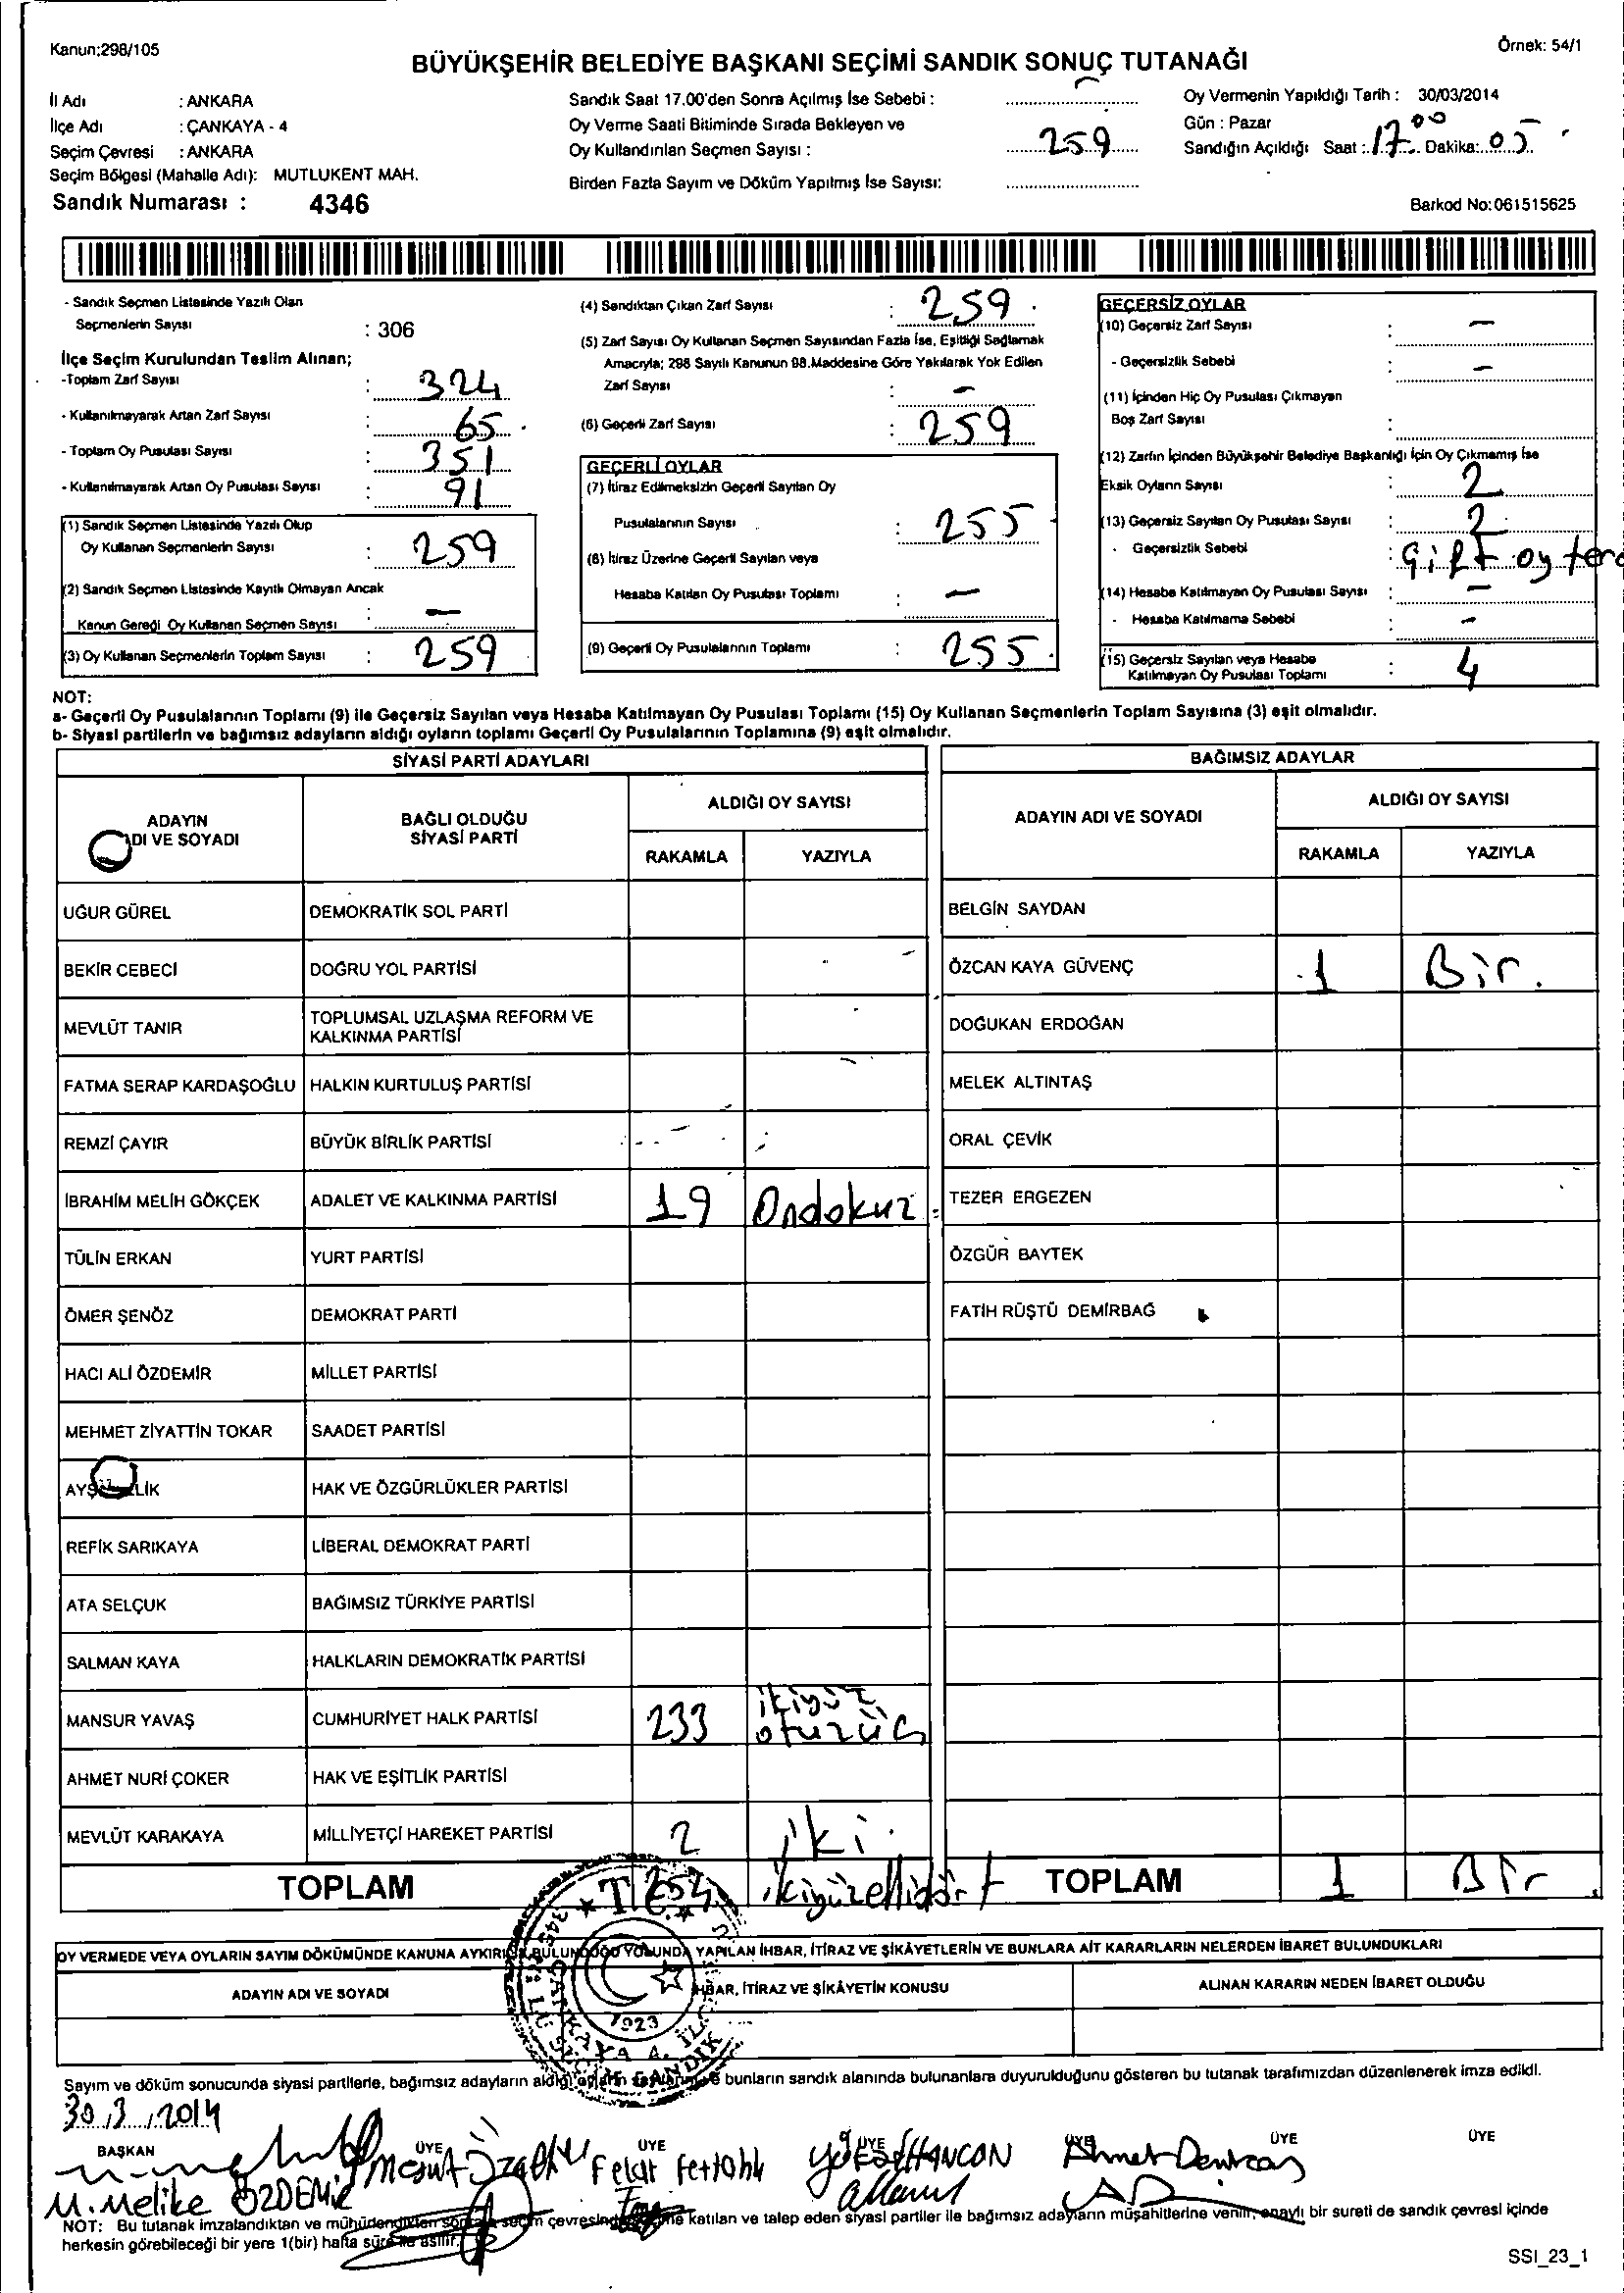 Kanun;298/105
Örnek: 54/1
BÜYÜKŞEHİR BELEDİYE BAŞKANI SEÇİMİ SANDIK SONUÇ TUTANAĞI
İl Adı : ANKARA
İlçe Adı : ÇANKAYA - 4
Seçim Çevresi : ANKARA
Seçim Bölgesi (Mahalle Adı): MUTLUKENT MAH.
Sandık Numarası : 4346
Sandık Saat 17.00'den Sonra Açılmış İse Sebebi :
Oy Verme Saati Bitiminde Sırada Bekleyen ve
Oy Kullandırılan Seçmen Sayısı : 259
Birden Fazla Sayım ve Döküm Yapılmış İse Sayısı:
Oy Vermenin Yapıldığı Tarih : 30/03/2014
Gün : Pazar
Sandığın Açıldığı Saat : 17 00 Dakika: 05
Barkod No:061515625
- Sandık Seçmen Listesinde Yazılı Olan
Seçmenlerin Sayısı : 306
İlçe Seçim Kurulundan Teslim Alınan;
-Toplam Zarf Sayısı : 324
- Kullanılmayarak Artan Zarf Sayısı : 65
- Toplam Oy Pusulası Sayısı : 351
- Kullanılmayarak Artan Oy Pusulası Sayısı : 91
(1) Sandık Seçmen Listesinde Yazılı Olup
Oy Kullanan Seçmenlerin Sayısı : 259
(2) Sandık Seçmen Listesinde Kayıtlı Olmayan Ancak
Kanun Gereği Oy Kullanan Seçmen Sayısı : —
(3) Oy Kullanan Seçmenlerin Toplam Sayısı : 259
(4) Sandıktan Çıkan Zarf Sayısı : 259
(5) Zarf Sayısı Oy Kullanan Seçmen Sayısından Fazla İse, Eşitliği Sağlamak
Amacıyla; 298 Sayılı Kanunun 98.Maddesine Göre Yakılarak Yok Edilen
Zarf Sayısı : —
(6) Geçerli Zarf Sayısı : 259
GEÇERLİ OYLAR
(7) İtiraz Edilmeksizin Geçerli Sayılan Oy
Pusulalarının Sayısı : 255
(8) İtiraz Üzerine Geçerli Sayılan veya
Hesaba Katılan Oy Pusulası Toplamı : —
(9) Geçerli Oy Pusulalarının Toplamı : 255
GEÇERSİZ OYLAR
(10) Geçersiz Zarf Sayısı : —
- Geçersizlik Sebebi : —
(11) İçinden Hiç Oy Pusulası Çıkmayan
Boş Zarf Sayısı :
(12) Zarfın İçinden Büyükşehir Belediye Başkanlığı İçin Oy Çıkmamış İse
Eksik Oyların Sayısı : 2
(13) Geçersiz Sayılan Oy Pusulası Sayısı : 2
- Geçersizlik Sebebi : Çift oy
(14) Hesaba Katılmayan Oy Pusulası Sayısı : —
- Hesaba Katılmama Sebebi : —
(15) Geçersiz Sayılan veya Hesaba
Katılmayan Oy Pusulası Toplamı : 4
NOT:
a- Geçerli Oy Pusulalarının Toplamı (9) ile Geçersiz Sayılan veya Hesaba Katılmayan Oy Pusulası Toplamı (15) Oy Kullanan Seçmenlerin Toplam Sayısına (3) eşit olmalıdır.
b- Siyasi partilerin ve bağımsız adayların aldığı oyların toplamı Geçerli Oy Pusulalarının Toplamına (9) eşit olmalıdır.
SİYASİ PARTİ ADAYLARI
ADAYIN
ADI VE SOYADI
BAĞLI OLDUĞU
SİYASİ PARTİ
ALDIĞI OY SAYISI
RAKAMLA YAZIYLA
UĞUR GÜREL DEMOKRATİK SOL PARTİ
BEKİR CEBECİ DOĞRU YOL PARTİSİ
MEVLÜT TANIR TOPLUMSAL UZLAŞMA REFORM VE
KALKINMA PARTİSİ
FATMA SERAP KARDAŞOĞLU HALKIN KURTULUŞ PARTİSİ
REMZİ ÇAYIR BÜYÜK BİRLİK PARTİSİ
İBRAHİM MELİH GÖKÇEK ADALET VE KALKINMA PARTİSİ 19 Ondokuz
TÜLİN ERKAN YURT PARTİSİ
ÖMER ŞENÖZ DEMOKRAT PARTİ
HACI ALİ ÖZDEMİR MİLLET PARTİSİ
MEHMET ZİYATTİN TOKAR SAADET PARTİSİ
HAK VE ÖZGÜRLÜKLER PARTİSİ
REFİK SARIKAYA LİBERAL DEMOKRAT PARTİ
ATA SELÇUK BAĞIMSIZ TÜRKİYE PARTİSİ
SALMAN KAYA HALKLARIN DEMOKRATİK PARTİSİ
MANSUR YAVAŞ CUMHURİYET HALK PARTİSİ 233 ikiyüz
otuzüç
AHMET NURİ ÇOKER HAK VE EŞİTLİK PARTİSİ
MEVLÜT KARAKAYA MİLLİYETÇİ HAREKET PARTİSİ 2 iki
TOPLAM 254 ikiyüzellidört
BAĞIMSIZ ADAYLAR
ADAYIN ADI VE SOYADI
ALDIĞI OY SAYISI
RAKAMLA YAZIYLA
BELGİN SAYDAN
ÖZCAN KAYA GÜVENÇ 1 Bir.
DOĞUKAN ERDOĞAN
MELEK ALTINTAŞ
ORAL ÇEVİK
TEZER ERGEZEN
ÖZGÜR BAYTEK
FATİH RÜŞTÜ DEMİRBAĞ
TOPLAM 1 Bir
OY VERMEDE VEYA OYLARIN SAYIM DÖKÜMÜNDE KANUNA AYKIRILIK BULUNDUĞU YOLUNDA YAPILAN İHBAR, İTİRAZ VE ŞİKÂYETLERİN VE BUNLARA AİT KARARLARIN NELERDEN İBARET BULUNDUKLARI
ADAYIN ADI VE SOYADI
İHBAR, İTİRAZ VE ŞİKÂYETİN KONUSU
ALINAN KARARIN NEDEN İBARET OLDUĞU
T.C.
1923
Sayım ve döküm sonucunda siyasi partilerle, bağımsız adayların aldığı bunların sandık alanında bulunanlara duyurulduğunu gösteren bu tutanak tarafımızdan düzenlenerek imza edildi.
30/3/2014
BAŞKAN ÜYE ÜYE ÜYE ÜYE ÜYE ÜYE
M. Melike ÖZDEMİR Mesut Felat Fettahlı HANCON Ahmet
NOT: Bu tutanak imzalandıktan ve mühürlendikten sonra seçim çevresinde seçime katılan ve talep eden siyasi partiler ile bağımsız adayların müşahitlerine verilir, onaylı bir sureti de sandık çevresi içinde
herkesin görebileceği bir yere 1(bir) hafta süre ile asılır.
SSI_23_1